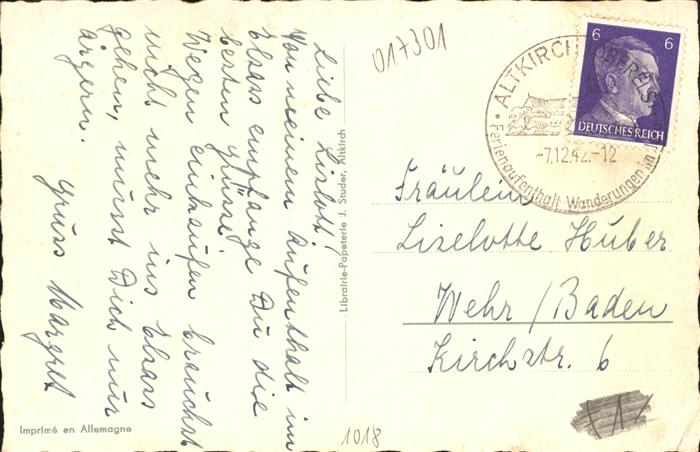 Liebe Lislott!
Von meinem Aufenthalt im
Elsass empfange Du die
besten Grüsse!
Wegen einkaufen brauchst
nicht mehr ins Elsass
gehen, musst Dich nur
ärgern.
Gruss Margret
Imprimé en Allemagne
Librairie-Papeterie J. Snuder, Altkirch
1018
017301
ALTKIRCH OBERELS
-7.12.42.-12
Ferienaufenthalt Wanderungen im
6 6
DEUTSCHES REICH
Fräulein
Liselotte Huber
Wehr / Baden
Kirchstr. 6